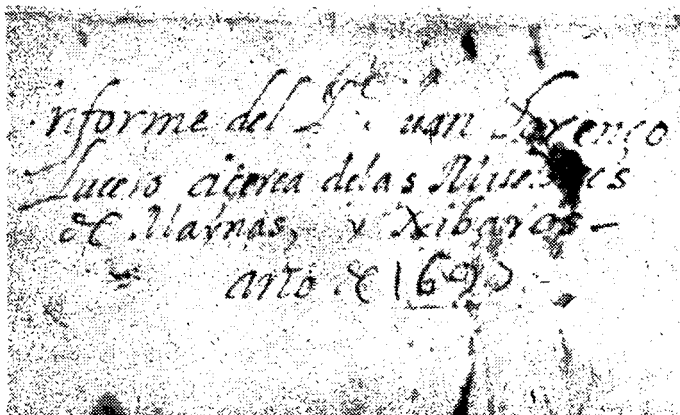 informe del Pe. Juan Lorenço
Lucero açerca delas Missiones
de Maynas, y Xibaros
año de